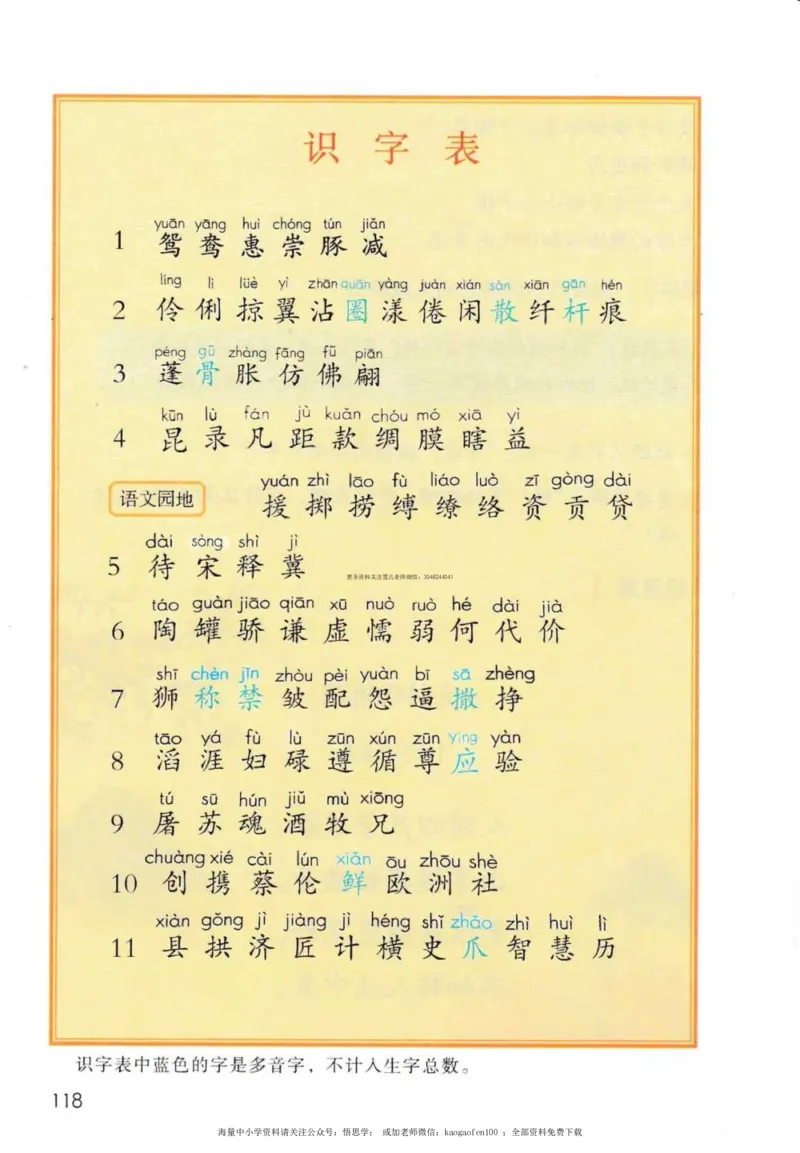 识字表
yuān yāng huì chóng tún jiǎn
1 鸳 鸯 惠 崇 豚 减
líng lì lüè yì zhān quān yàng juàn xián sǎn xiān gān hén
2 伶 俐 掠 翼 沾 圈 漾 倦 闲 散 纤 杆 痕
péng gū zhàng fāng fú piān
3 蓬 骨 胀 仿 佛 翩
kūn lù fán jù kuǎn chóu mó xiā yì
4 昆 录 凡 距 款 绸 膜 瞎 益
yuán zhì lāo fù liáo luò zī gòng dài
语文园地 援 掷 捞 缚 缭 络 资 贡 贷
dài sòng shì jì
5 待 宋 释 冀
táo guàn jiāo qiān xū nuò ruò hé dài jià
6 陶 罐 骄 谦 虚 懦 弱 何 代 价
shī chèn jīn zhòu pèi yuàn bī sā zhèng
7 狮 称 禁 皱 配 怨 逼 撒 挣
tāo yá fù lù zūn xún zūn yìng yàn
8 滔 涯 妇 碌 遵 循 尊 应 验
tú sū hún jiǔ mù xiōng
9 屠 苏 魂 酒 牧 兄
chuàng xié cài lún xiǎn ōu zhōu shè
10 创 携 蔡 伦 鲜 欧 洲 社
xiàn gǒng jì jiàng jì héng shǐ zhǎo zhì huì lì
11 县 拱 济 匠 计 横 史 爪 智 慧 历
识字表中蓝色的字是多音字，不计入生字总数。
118
海量中小学资料请关注公众号：悟思学； 或加老师微信：kaogaofen100 ；全部资料免费下载